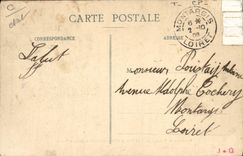 CARTE POSTALE
CORRESPONDANCE
ADRESSE
MONTARGIS
LOIRET
Salut
Monsieur
Avenue Adolphe Cochery
Montargis
Loiret